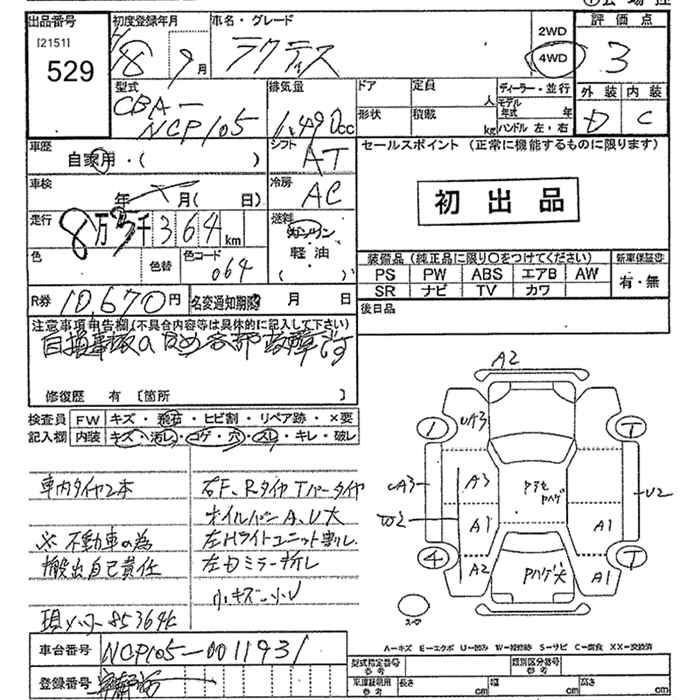 出品番号
[2151]
529
初度登録年月
8 9月
車名・グレード
ラクティス
2WD
4WD
評価点
3
外装 内装
D C
型式
CBA-
NCP105
排気量
1.490cc
ドア 定員 人
形状 積載 kg
ディーラー・並行
モデル年式 年
ハンドル 左・右
車歴
自家用・( )
シフト
AT
セールスポイント (正常に機能するものに限ります)
初出品
車検
年 月( 日)
冷房
AC
走行
8万5千364km
燃料
ガソリン
軽・油
( )
色
色替
色コード
064
装備品 (純正品に限り○をつけてください)
PS PW ABS エアB AW
SR ナビ TV カワ
新車保証書
有・無
R券 10,670円
名変通知期限 月 日
後日品
注意事項申告欄(不具合内容等は具体的に記入して下さい)
自損事故の為各部故障です
修復歴 有 [箇所 ]
検査員
記入欄
FW キズ・飛石・ヒビ割・リペア跡・×要
内装 キズ・汚レ・コゲ・穴・スレ・キレ・破レ
車内タイヤ2本
※不動車の為
搬出自己責任
現メーター85364k
右F、RタイヤTパータイヤ
オイルパンA、U大
左Hライトユニット割レ
左Dミラー折レ
小キズ・小U
A2
1
UA3
T
A3
A3
U2
W2
A1
A1
4
A2
Pハゲ大
A1
T
スーア
A=キズ E=エクボ U=凹み W=補修跡 S=サビ C=腐食 XX=交換済
車台番号 NCP105-0011931
登録番号
型式指定番号 参考
類別区分番号 参考
車庫証明用 参考
長さ cm 幅 cm 高さ cm